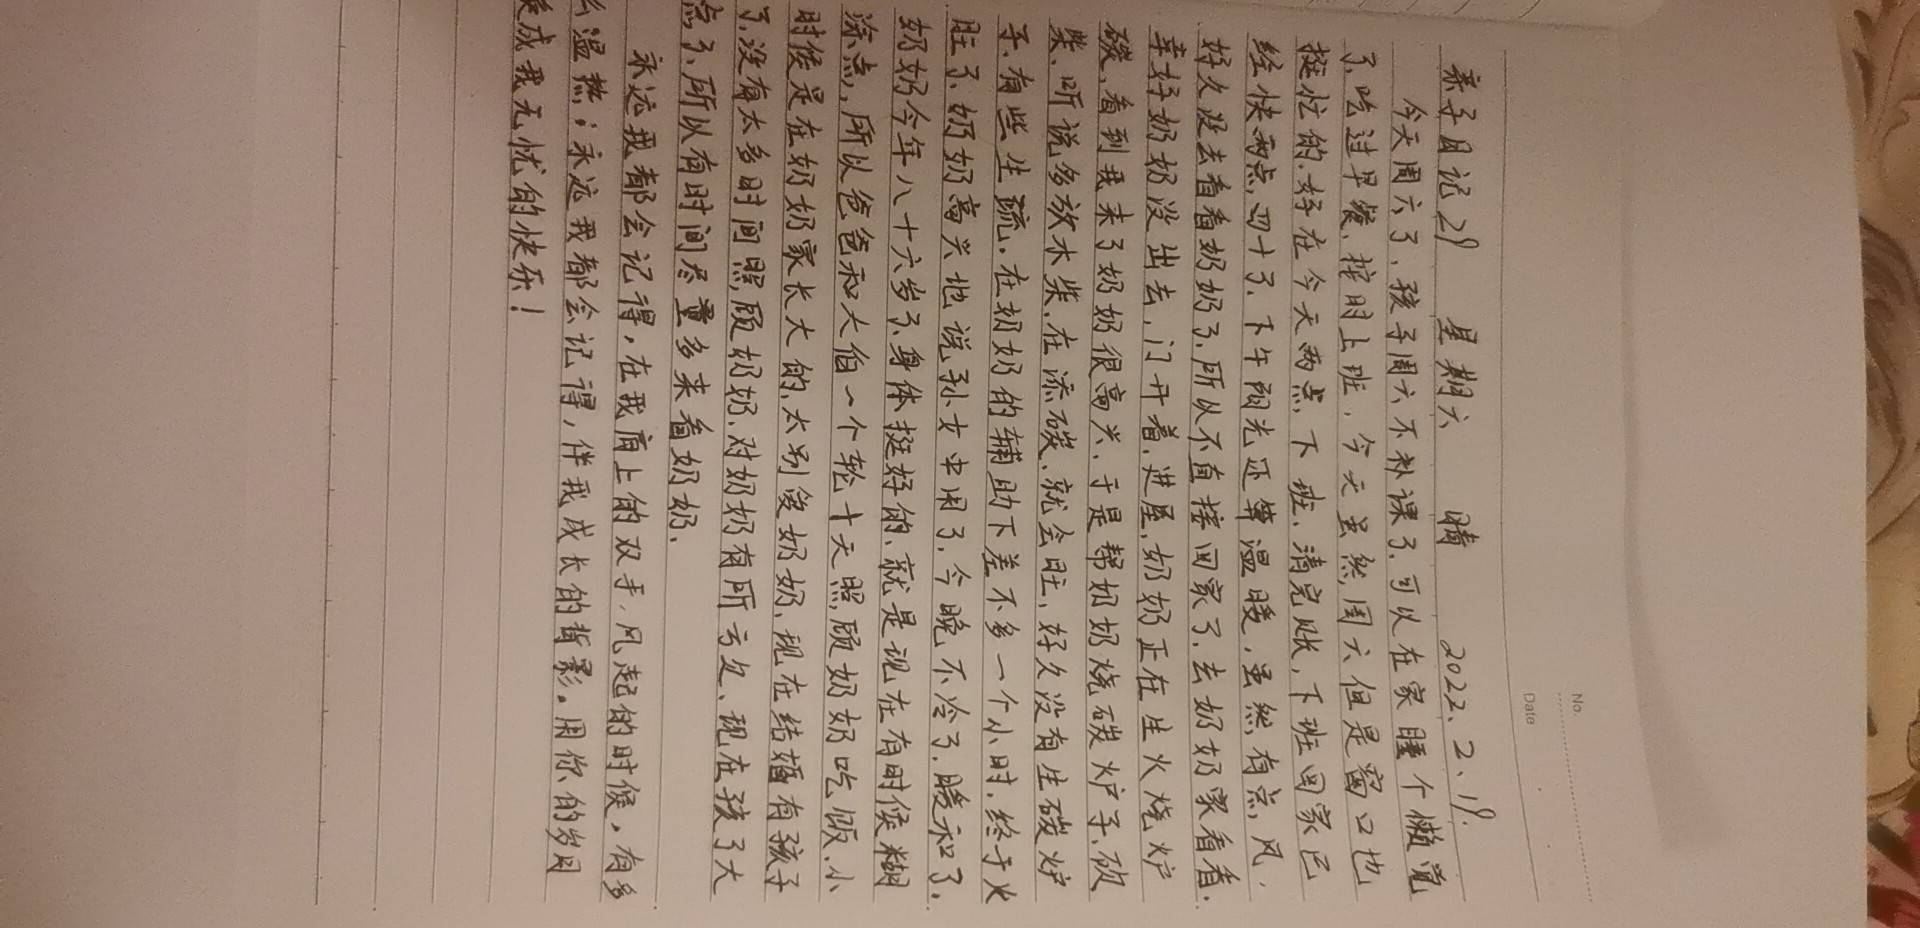 No.
Date
亲子日记29 星期六 晴 2022、2、19.
今天周六了、孩子周六不补课了、可以在家睡个懒觉
了、吃过早餐、按时上班、今天虽然周六但是窗口也
挺忙的、好在今天两点下班、清完账、下班回家已
经快两点四十了、下午阳光还算温暖、虽然有点风、
好久没去看看奶奶了、所以不直接回家了、去奶奶家看看、
幸好奶奶没出去、门开着、进屋、奶奶正在生火烧炉
碳、看到我来了奶奶很高兴、于是帮奶奶烧碳炉子、砍
柴、听说多放木柴、在添碳、就会旺、好久没有生碳炉
子、有些生疏、在奶奶的辅助下差不多一个小时、终于火
旺了、奶奶高兴地说孙女中用了、今晚不冷了、暖和了、
奶奶今年八十六岁了、身体挺好的、就是现在有时侯糊
涂点、所以爸爸和大伯一个轮十天照顾奶奶吃饭、小
时侯是在奶奶家长大的、太别爱奶奶、现在结婚有孩子
了、没有太多时间照顾奶奶、对奶奶有所亏欠、现在孩子大
点了、所以有时间尽量多来看奶奶、
永远我都会记得，在我肩上的双手，风起的时侯，有多
么温热；永远我都会记得，伴我成长的背影。用你的岁月
换成我无忧的快乐！